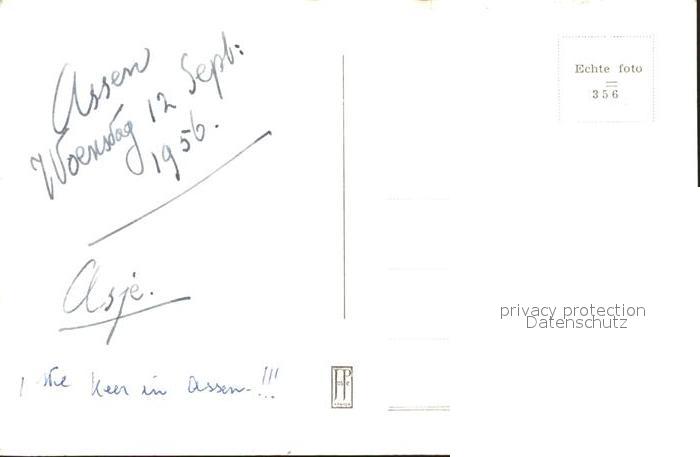 Assen
Woensdag 12 Sept:
1956.
Asje.
1 ste keer in Assen!!!
Echte foto
356
privacy protection
Datenschutz
JP